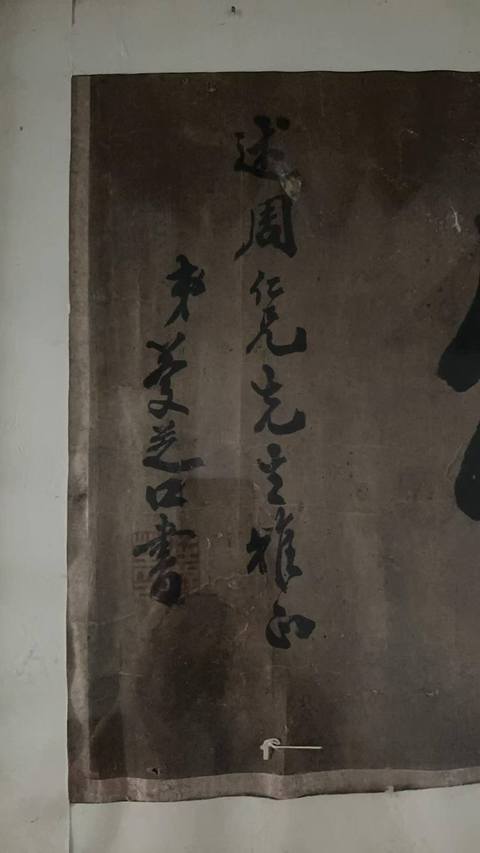 述周仁兄先生雅正
弟蔓芝口書